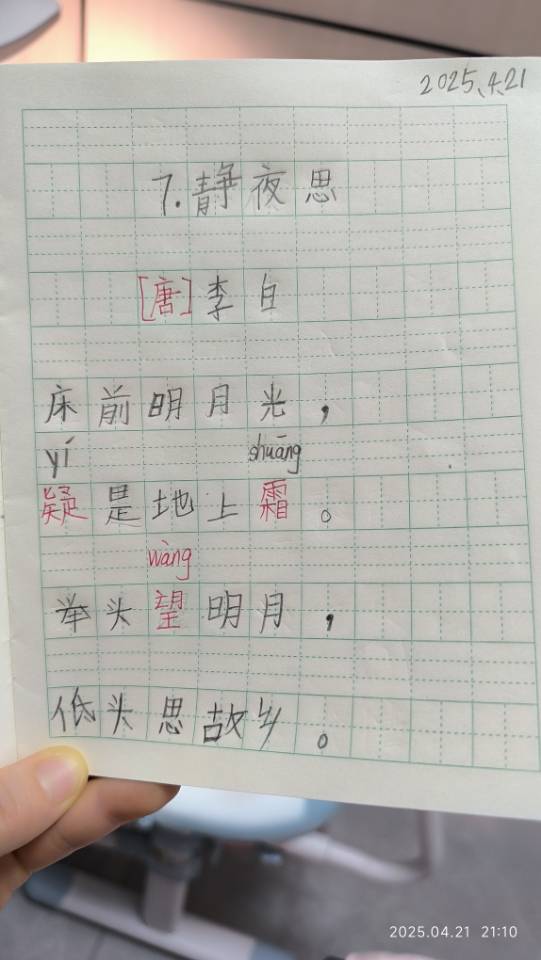 2025.4.21
7.静夜思
[唐]李白
床前明月光，
yí shuāng
疑是地上霜。
wàng
举头望明月，
低头思故乡。
2025.04.21 21:10